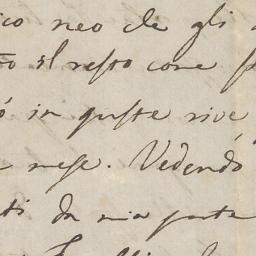 ico neo de gli
il resto come
ò in queste rive
mese. Vedendo
ti da mia parte